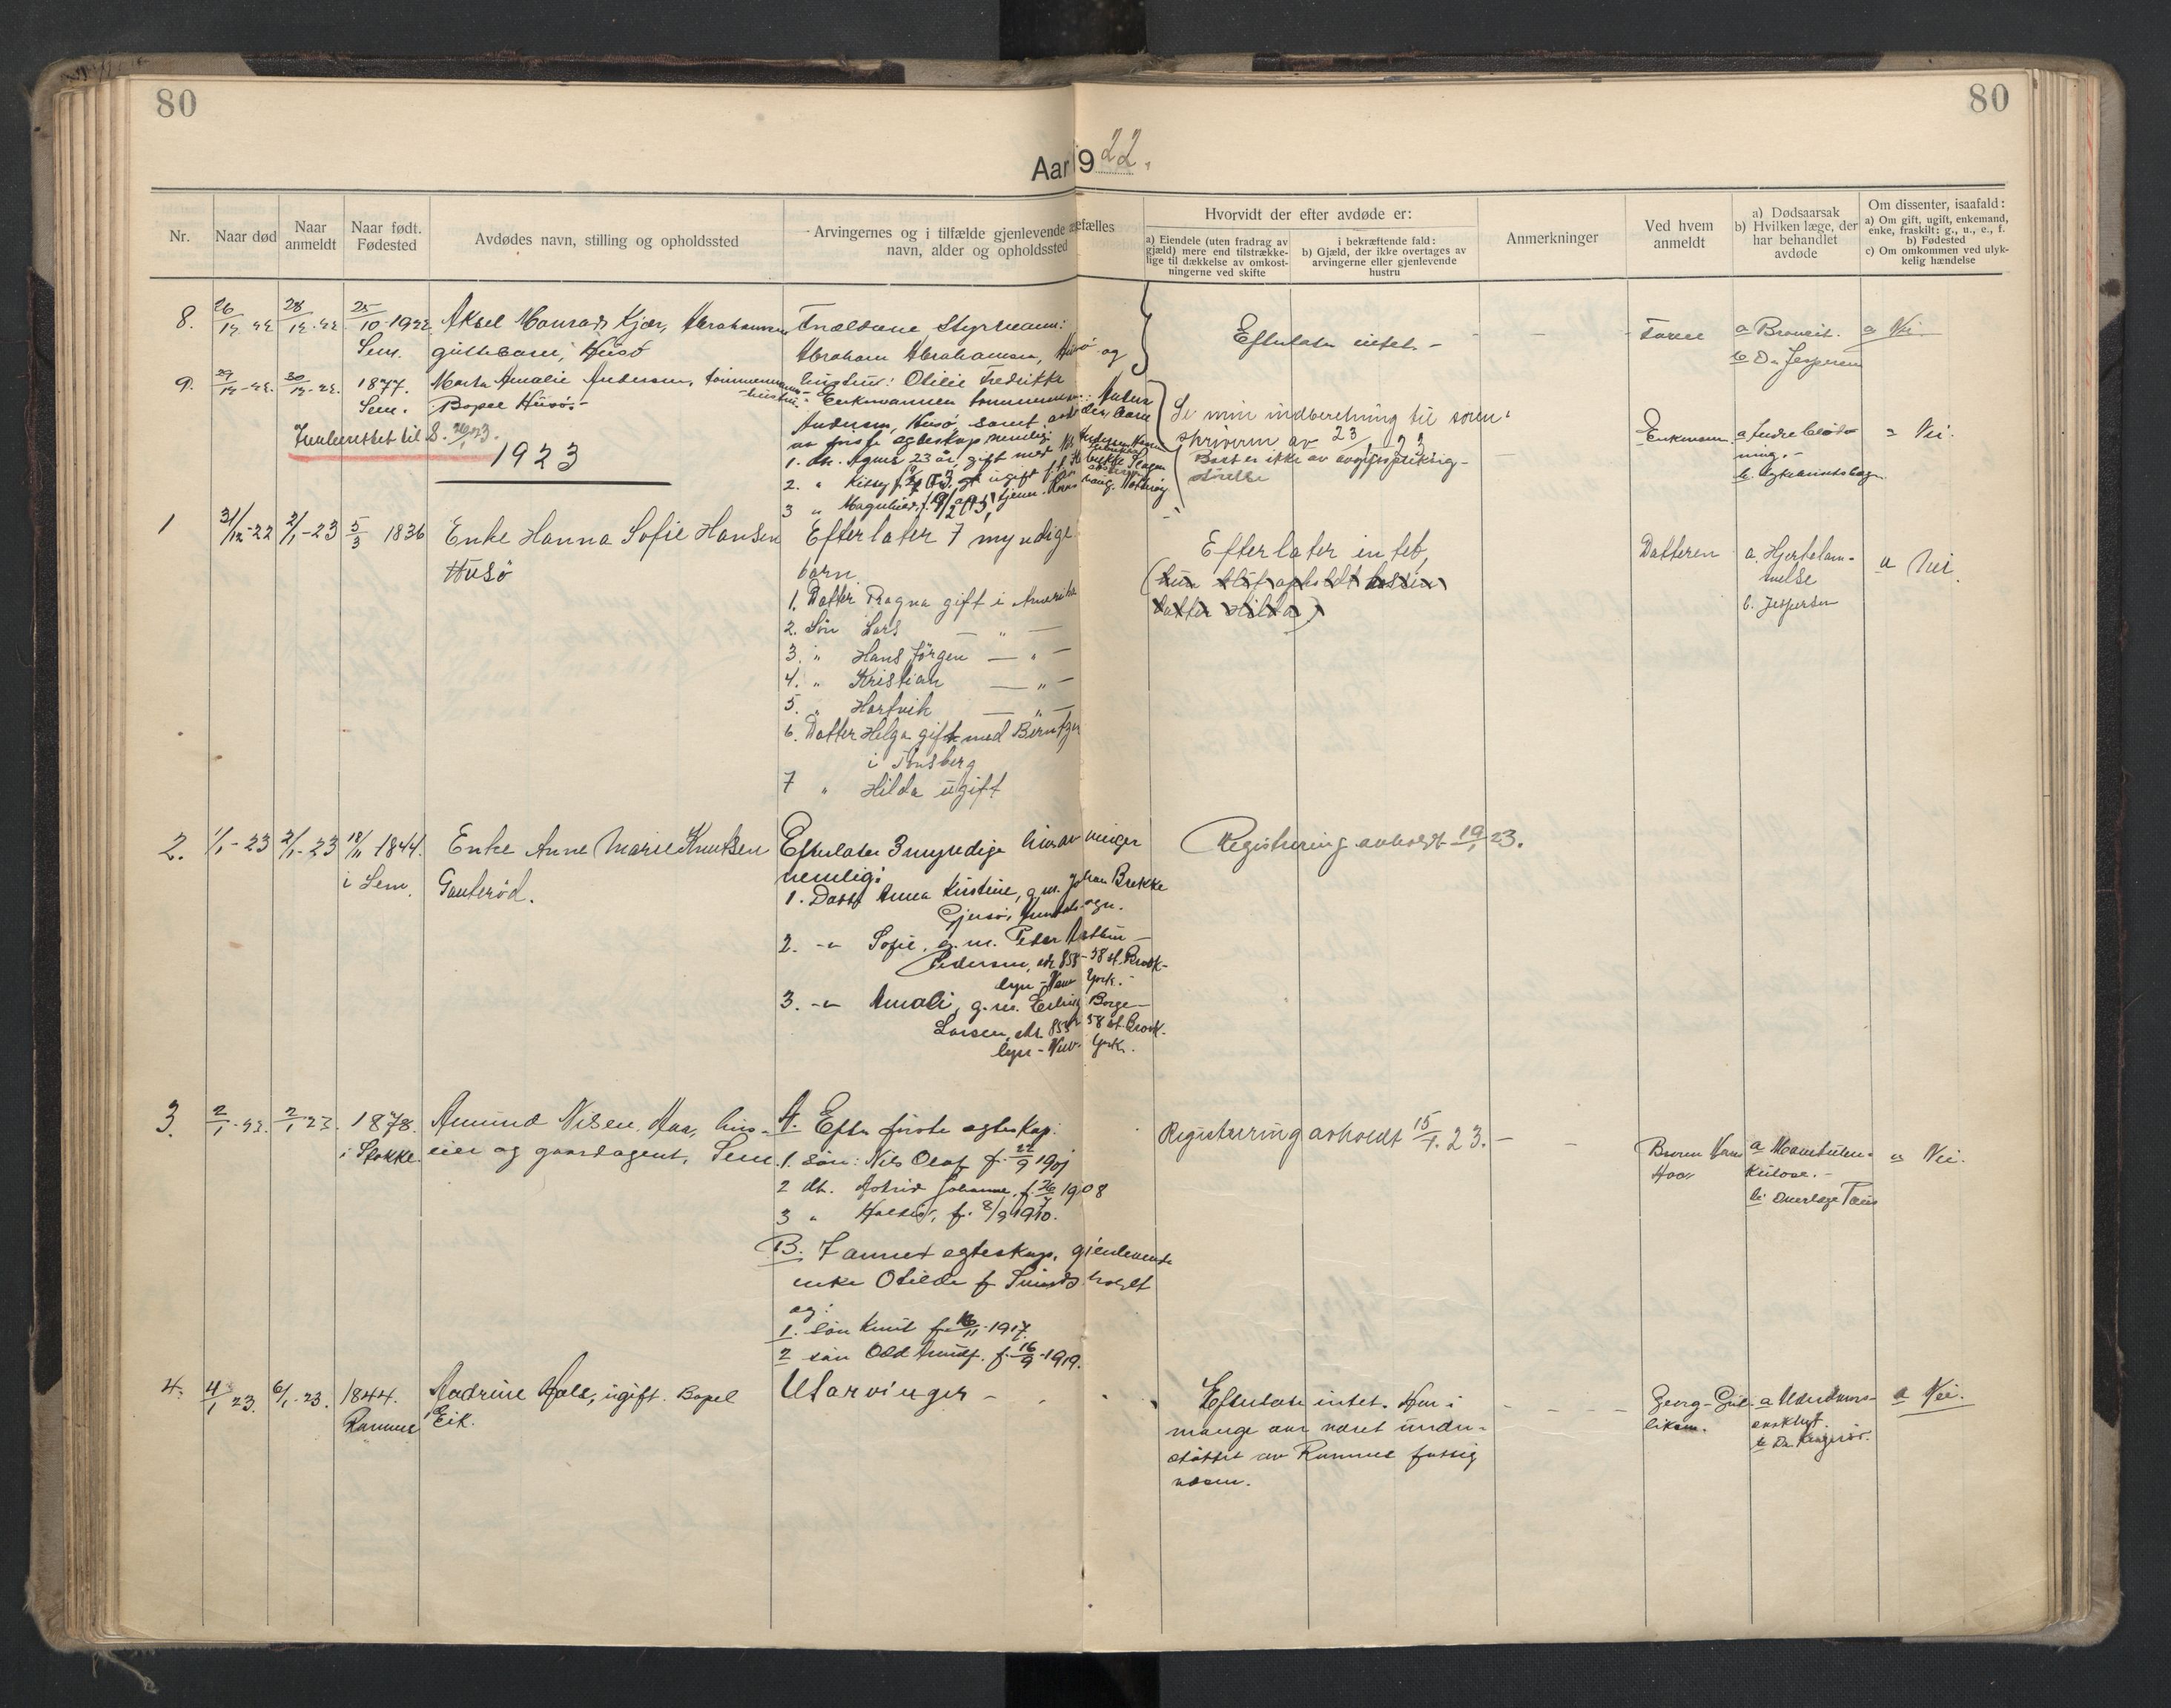 80
80
Aar 1922.
Nr.
Naar død
Naar anmeldt
Naar født. Fødested
Avdødes navn, stilling og opholdssted
Arvingernes og i tilfælde gjenlevende ægtefælles navn, alder og opholdssted
Hvorvidt der efter avdøde er:
a) Eiendele (uten fradrag av gjæld) mere end tilstrækkelige til dækkelse av omkostningerne ved skifte
i bekræftende fald:
b) Gjæld, der ikke overtages av arvingerne eller gjenlevende hustru
Anmerkninger
Ved hvem anmeldt
a) Dødsaarsak
b) Hvilken læge, der har behandlet avdøde
Om dissenter, isaafald:
a) Om gift, ugift, enkemand, enke, fraskilt: g., u., e., f.
b) Fødested
c) Om omkommen ved ulykkelig hændelse
8. 26/12-22 28/12-22 25/10-1922 Sem.
Aksel Konrad Kjær, Abrahamsen
guttebarn, Husö
Forældrene Styrmann:
Abraham Abrahamsen, Husö og
hustru: Otilie Fredrikke
Efterlater intet. -
Faren
a Bronkit.
b Dr. Jespersen
a Nei
9. 29/12-22. 30/12-22. 1877. Sem.
Marta Amalie Andersen, tømmermanns-
hustru. Bopel Husö.-
Enkemannen tømmermann: Anton
Andersen, Husö, samt
av første egteskap, nemlig:
1. dtr. Agnes 23 år, gift med
2. " Kitty
3 "
Se min indberetning til soren-
skriveren av 23/1 23
Enkemann.
a Indre blød-
ning.-
a Nei.
Innberettet til S. 20/1 23.
1923
1 31/12-22 2/1-23 5/3 1836
Enke Hanna Sofie Hansen
Husö
Efterlater 7 myndige
barn.
1. Datter Ragna gift i Amerika
2. Sön Lars — " —
3. " Hans Jörgen — " —
4. " Kristian — " —
5. " Hartvik — " —
6. Datter Helga gift med Berntzen
i Tönsberg
7 " Hilda ugift
Efterlater intet,
(hun blif opholdt hos sin
datter Hilda)
Datteren
a. Hjertelam-
melse
b. Jespersen
a Nei.
2. 1/1-23 2/1-23 18/11 1844. i Sem.
Enke Anne Marie Knutsen
Gauterød.
Efterlater 3 myndige livsarvinger
nemlig:
1. Datt Anna Kirstine, g.m. Johan Brekke
2. -"- Sofie, g.m. Peder
Pedersen, adr 858 - 58 st. Brook-
lyn - New York.
3. -"- Amali, g.m. Erling Borge-
Larsen, adr. 858 58 st. Brook-
lyn - New York.
Registrering avholdt 19/1 23.
3. 2/1-23. 2/1 23. 1878. i Stokke.
Amund Nilsen Haa, hus-
eier og gaardagent, Sem.
A. Efter förste egteskap:
1. sön: Nils Olaf f. 22/9 1901
2 dtr. Astrid Johanne, f. 26/7 1908
3 " Halldis, f. 8/9 1910.
B. I annet egteskap, gjenlevende
enke Otilde f.
og:
1. sön Knut f. 16/11-1917.
2 sön Odd f. 16/9-1919.
Registrering avholdt 15/1. 23. -
Broren Hans
Haa
kulose.-
a Nei.
4. 4/1 23. 6/1-23. 1844. Ramnes
Andrine Hals, ugift. Bopel
Eik.
Utarvinger -
Efterlater intet. Har i
mange aar været under-
støttet av Ramnes fattig
væsen.
Georg
a Alderdoms-
b Dr.
a Nei.